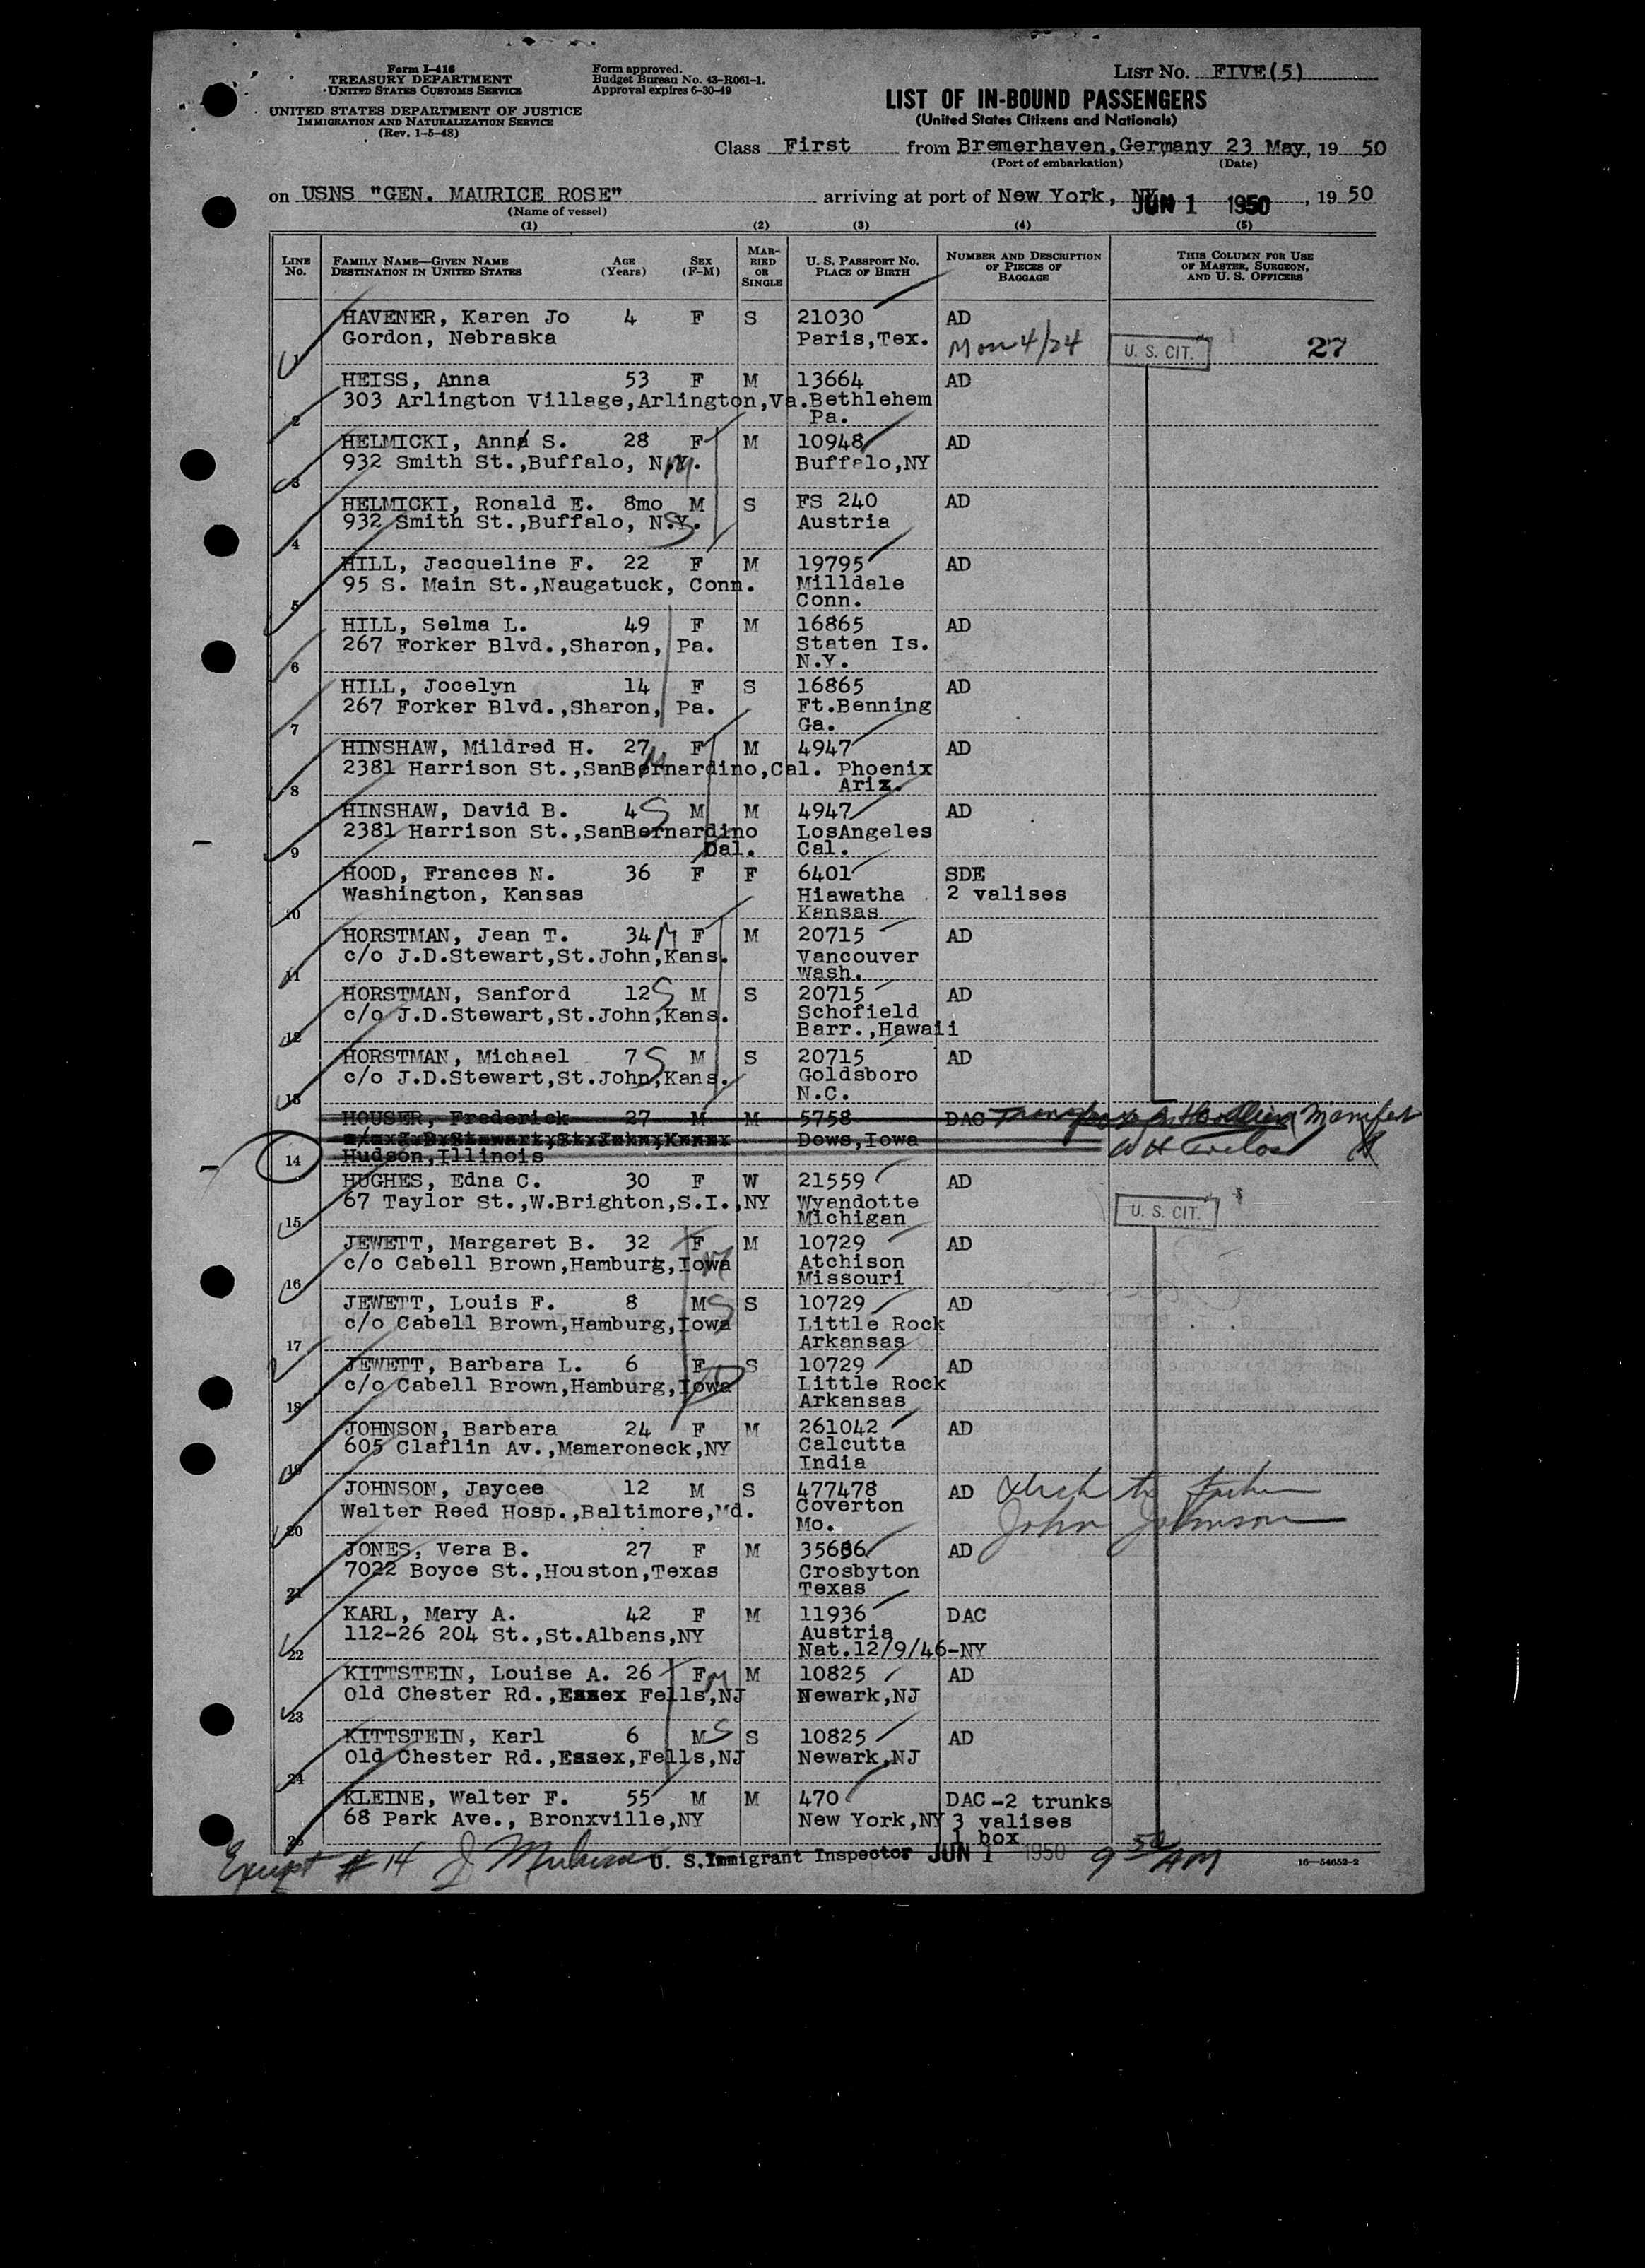 Form I-416
TREASURY DEPARTMENT
UNITED STATES CUSTOMS SERVICE
UNITED STATES DEPARTMENT OF JUSTICE
IMMIGRATION AND NATURALIZATION SERVICE
(Rev. 1-5-48)
Form approved.
Budget Bureau No. 43-R061-1.
Approval expires 6-30-49
LIST No. FIVE(5)
LIST OF IN-BOUND PASSENGERS
(United States Citizens and Nationals)
Class First from Bremerhaven,Germany 23 May, 19 50
(Port of embarkation) (Date)
on USNS "GEN. MAURICE ROSE" arriving at port of New York, NY JUN 1 1950, 19 50
(Name of vessel)
(1) (2) (3) (4) (5)
LINE No. FAMILY NAME—GIVEN NAME DESTINATION IN UNITED STATES AGE (Years) SEX (F-M) MARRIED OR SINGLE U. S. PASSPORT NO. PLACE OF BIRTH NUMBER AND DESCRIPTION OF PIECES OF BAGGAGE THIS COLUMN FOR USE OF MASTER, SURGEON, AND U. S. OFFICERS
HAVENER, Karen Jo 4 F S 21030 AD
1 Gordon, Nebraska Paris,Tex. Mon 4/24 U. S. CIT. 27
HEISS, Anna 53 F M 13664 AD
303 Arlington Village,Arlington,Va.Bethlehem
2 Pa.
HELMICKI, Anna S. 28 F M 10948 AD
932 Smith St.,Buffalo, N.Y. M Buffalo,NY
3
HELMICKI, Ronald E. 8mo M S FS 240 AD
932 Smith St.,Buffalo, N.Y. S Austria
4
HILL, Jacqueline F. 22 F M 19795 AD
95 S. Main St.,Naugatuck, Conn. Milldale
5 Conn.
HILL, Selma L. 49 F M 16865 AD
267 Forker Blvd.,Sharon, Pa. Staten Is.
6 N.Y.
HILL, Jocelyn 14 F S 16865 AD
267 Forker Blvd.,Sharon, Pa. Ft.Benning
7 Ga.
HINSHAW, Mildred H. 27 M F M 4947 AD
2381 Harrison St.,SanBernardino,Cal. Phoenix
8 Ariz.
HINSHAW, David B. 4 S M M 4947 AD
2381 Harrison St.,SanBernardino LosAngeles
9 Cal. Cal.
HOOD, Frances N. 36 F F 6401 SDE
Washington, Kansas Hiawatha 2 valises
10 Kansas
HORSTMAN, Jean T. 34 M F M 20715 AD
c/o J.D.Stewart,St.John,Kans. Vancouver
11 Wash.
HORSTMAN, Sanford 12 S M S 20715 AD
c/o J.D.Stewart,St.John,Kans. Schofield
12 Barr.,Hawaii
HORSTMAN, Michael 7 S M S 20715 AD
c/o J.D.Stewart,St.John,Kans. Goldsboro
13 N.C.
HOUSER, Frederick 27 M M 5758 DAC Manifest
Dows,Iowa
14 Hudson,Illinois
HUGHES, Edna C. 30 F W 21559 AD
67 Taylor St.,W.Brighton,S.I.,NY Wyandotte U. S. CIT.
15 Michigan
JEWETT, Margaret B. 32 F M 10729 AD
c/o Cabell Brown,Hamburg,Iowa M Atchison
16 Missouri
JEWETT, Louis F. 8 M S S 10729 AD
c/o Cabell Brown,Hamburg,Iowa Little Rock
17 Arkansas
JEWETT, Barbara L. 6 F S 10729 AD
c/o Cabell Brown,Hamburg,Iowa Little Rock
18 Arkansas
JOHNSON, Barbara 24 F M 261042 AD
605 Claflin Av.,Mamaroneck,NY Calcutta
19 India
JOHNSON, Jaycee 12 M S 477478 AD to father
Walter Reed Hosp.,Baltimore,Md. Coverton John Johnson
20 Mo.
JONES, Vera B. 27 F M 35686 AD
7022 Boyce St.,Houston,Texas Crosbyton
21 Texas
KARL, Mary A. 42 F M 11936 DAC
112-26 204 St.,St.Albans,NY Austria
22 Nat.12/9/46-NY
KITTSTEIN, Louise A. 26 F M M 10825 AD
Old Chester Rd.,Essex Fells,NJ Newark,NJ
23
KITTSTEIN, Karl 6 M S S 10825 AD
Old Chester Rd.,Essex,Fells,NJ Newark,NJ
24
KLEINE, Walter F. 55 M M 470 DAC-2 trunks
68 Park Ave., Bronxville,NY New York,NY 3 valises
25 1 box
Except #14 U. S. Immigrant Inspector JUN 1 1950 9 50 AM 16—54652-2